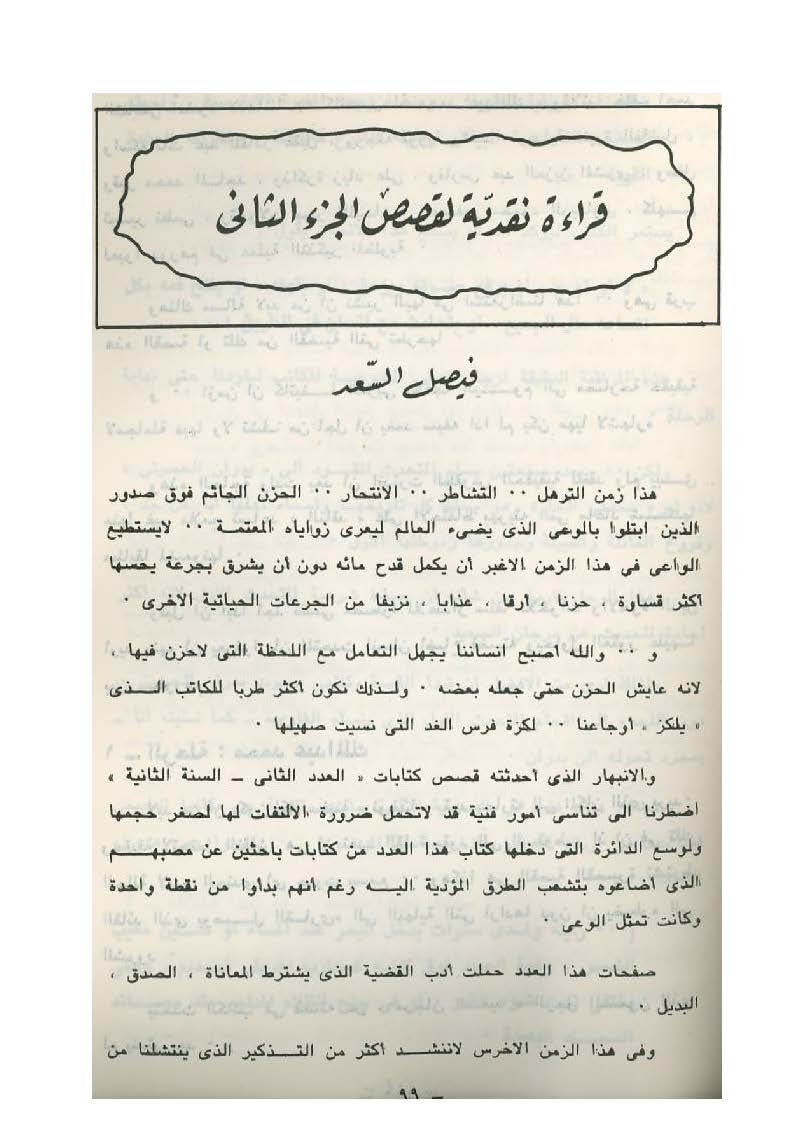 قراءة نقديّة لقصص الجزء الثانى
فيصل السّعد
هذا زمن الترهل ·· التشاطر ·· الانتحار ·· الحزن الجاثم فوق صدور
الذين ابتلوا بالوعى الذى يضىء العالم ليعرى زواياه المعتمة ·· لايستطيع
الواعى فى هذا الزمن الاغبر أن يكمل قدح مائه دون أن يشرق بجرعة يحسها
أكثر قساوة ، حزنا ، أرقا ، عذابا ، نزيفا من الجرعات الحياتية الاخرى ·
و ·· والله أصبح انساننا يجهل التعامل مع اللحظة التى لاحزن فيها ،
لانه عايش الحزن حتى جعله بعضه · ولـذلك نكون أكثر طربا للكاتب الـــذى
« يلكز » أوجاعنا ·· لكزة فرس الغد التى نسيت صهيلها ·
والانبهار الذى أحدثته قصص كتابات « العدد الثانى – السنة الثانية »
أضطرنا الى تناسى أمور فنية قد لاتحمل ضرورة الالتفات لها لصغر حجمها
ولوسع الدائرة التى دخلها كتاب هذا العدد من كتابات باحثين عن مصبهــم
الذى أضاعوه بتشعب الطرق المؤدية اليــه رغم أنهم بدأوا من نقطة واحدة
وكانت تمثل الوعى ·
صفحات هذا العدد حملت أدب القضية الذى يشترط المعاناة ، الصدق ،
البديل ·
وفى هذا الزمن الاخرس لاننشــد أكثر من التــذكير الذى ينتشلنا من
– ٩٩